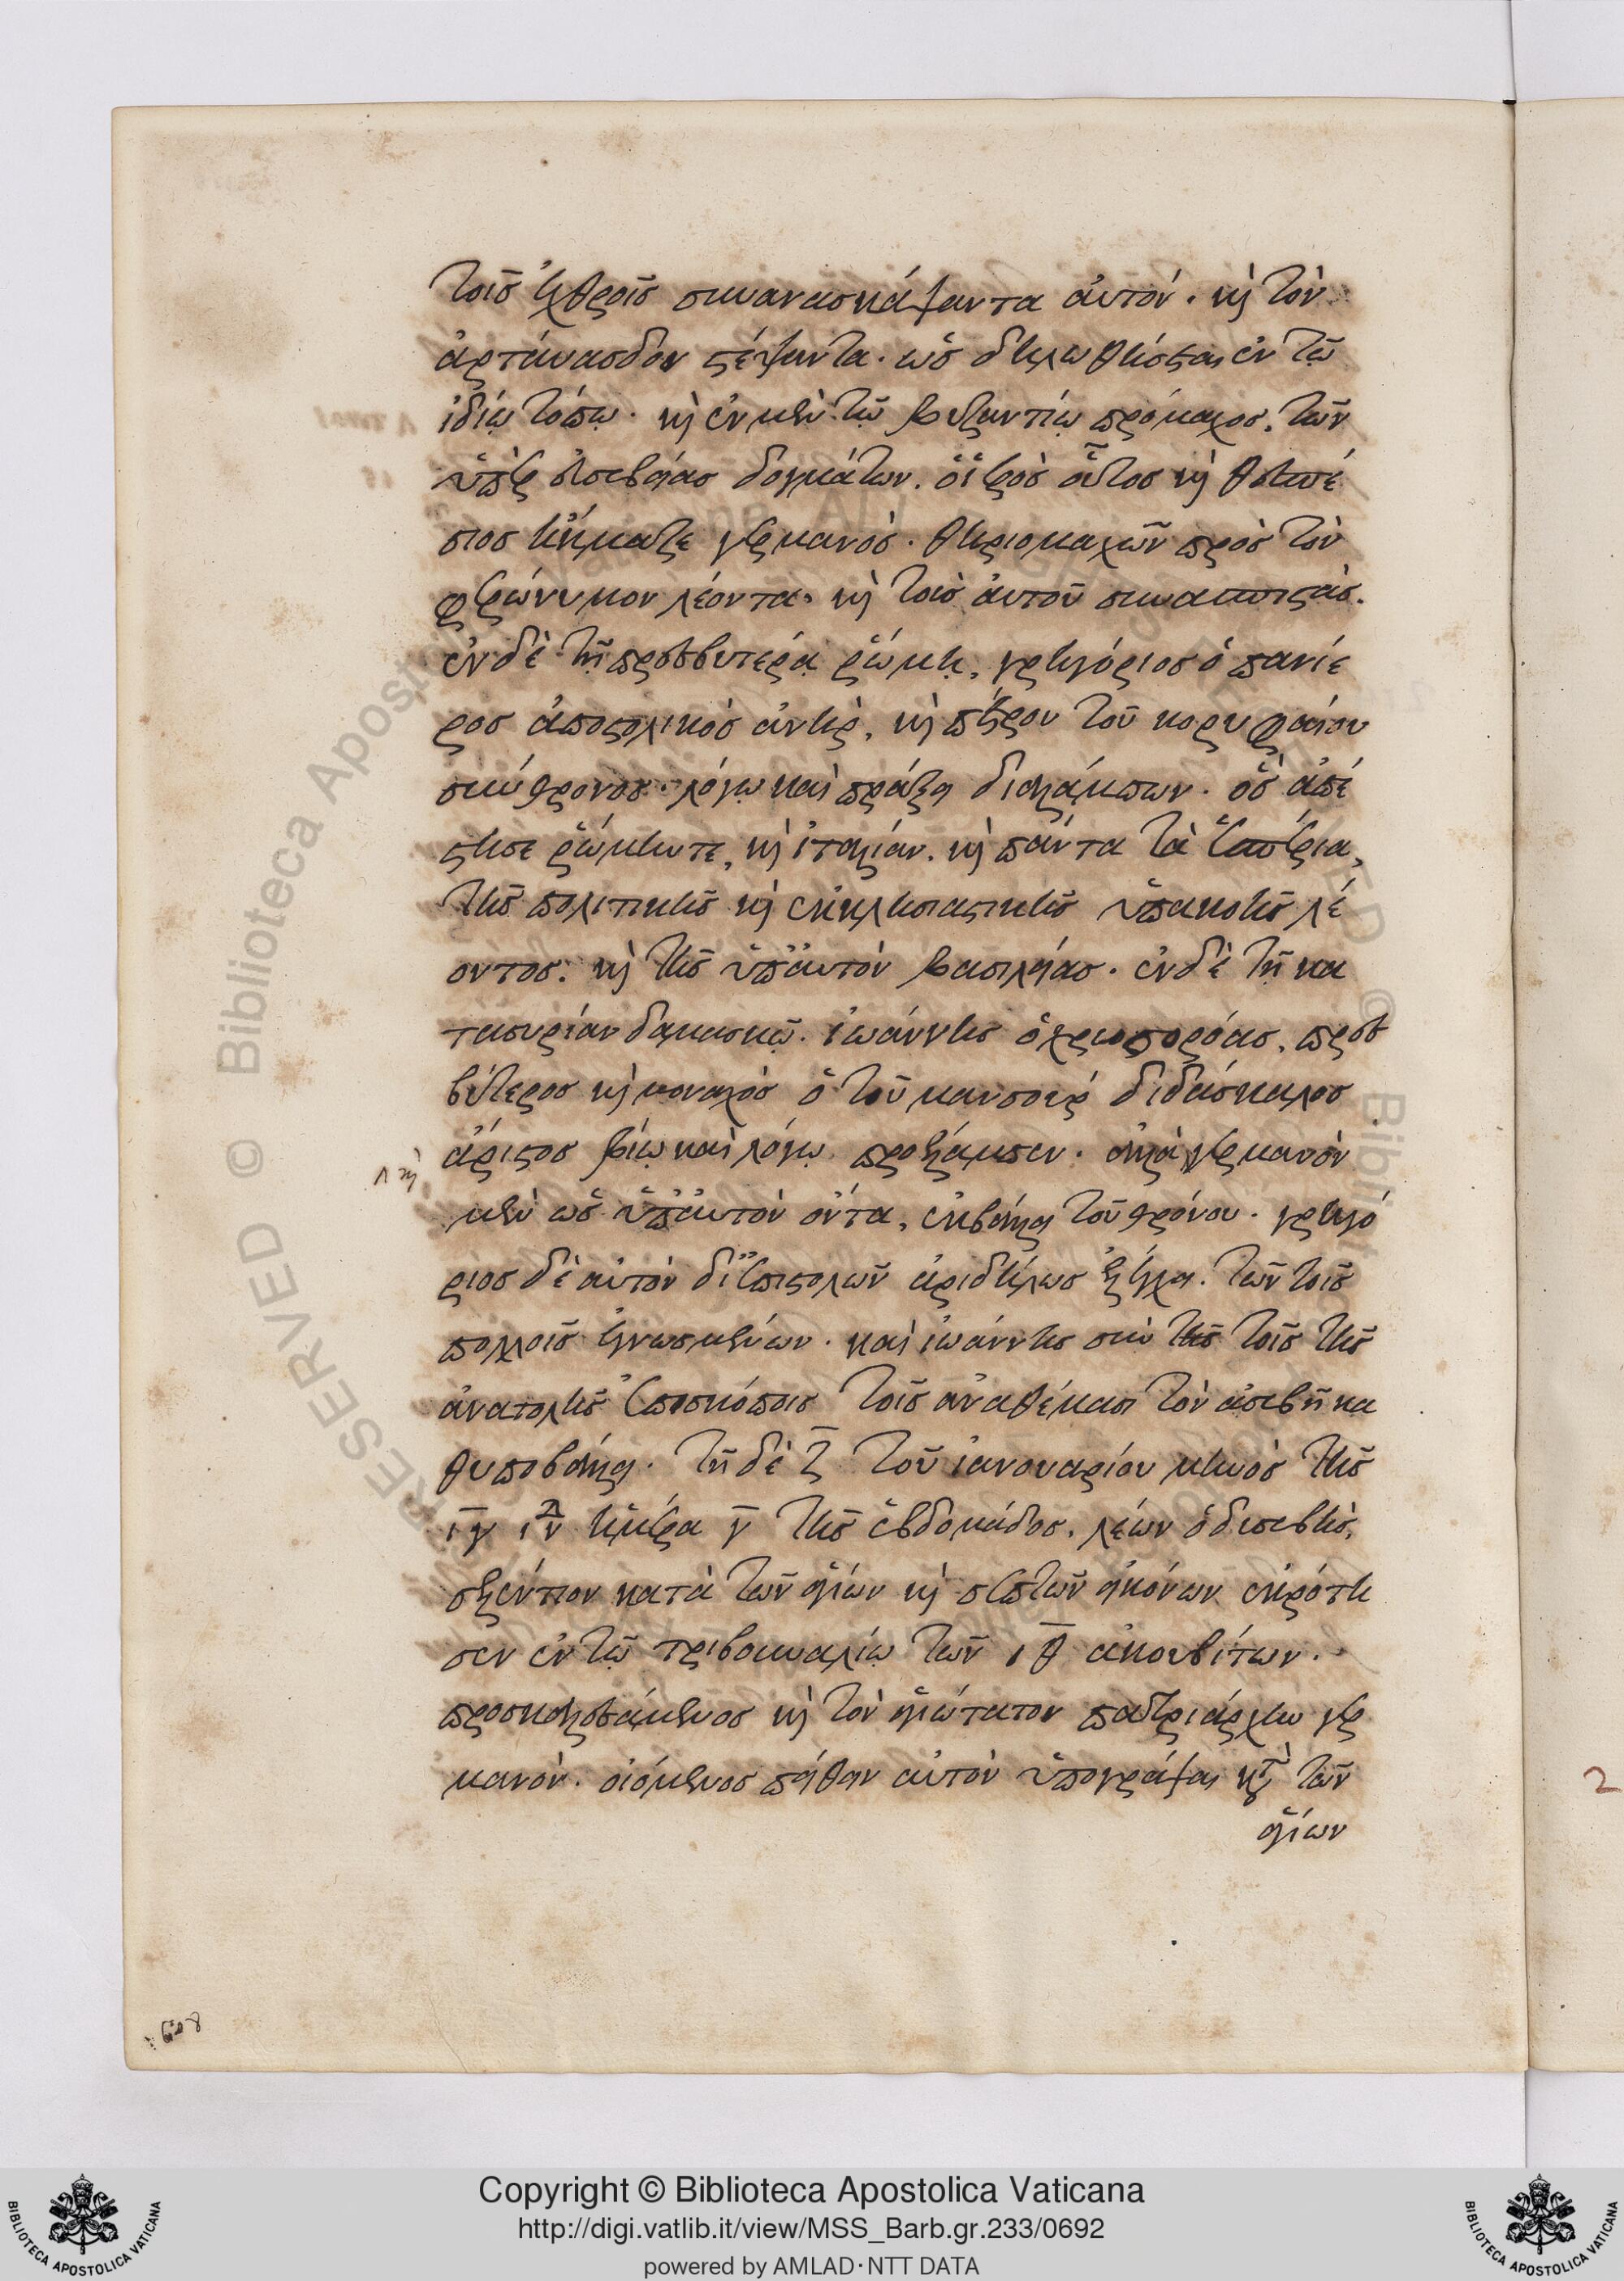 τοῖς ἐχθροῖς συνανασκάψαντα αὐτόν. καὶ τὸν
ἀρτάυασδον στέψαντα. ὡς δηλωθήσεται ἐν τῷ
ἰδίῳ τόπῳ. καὶ ἐν μὲν τῷ βυζαντίῳ πρόμαχος, τῶν
ὑπὲρ εὐσεβείας δογμάτων. ὁ ἱερὸς οὗτος καὶ θεσπέ
σιος ἤκμαζε γερμανὸς. θηριομαχῶν πρὸς τὸν
φερώνυμον λέοντα, καὶ τοὺς αὐτοῦ συνασπιστὰς.
ἐν δὲ τῇ πρεσβυτέρᾳ ῥώμῃ, γρηγόριος ὁ πανίε
ρος ἀποστολικὸς ἀνὴρ, καὶ πέτρου τοῦ κορυφαίου
σύνθρονος. λόγῳ καὶ πράξει διαλάμπων. ὃς ἀπέ
στησε ῥώμην τε, καὶ ἰταλίαν. καὶ πάντα τὰ ἑσπέρια,
τῆς πολιτικῆς καὶ ἐκκλησιαστικῆς ὑπακοῆς λέ
οντος. καὶ τῆς ὑπ' αὐτὸν βασιλείας. ἐν δὲ τῇ κα
τασυρίαν δαμασκῷ. ἰωάννης ὁ χρυσορρόας, πρεσ
βύτερος καὶ μοναχὸς ὁ τοῦ μανσοὺρ διδάσκαλος
ἄριστος βίῳ καὶ λόγῳ προέλαμπεν. ἀλλὰ γερμανὸν
μὲν ὡς ὑπ' αὐτὸν ὄντα, ἐκβάλλει τοῦ θρόνου. γρηγό
ριος δὲ αὐτὸν δι' ἐπιστολῶν ἀριδήλως ἐξήλεγχει. τῶν τοῖς
πολλοῖς ἐγνωσμένων. καὶ ἰωάννης σὺν τῆς τοῖς τῆς
ἀνατολῆς ἐπισκόποις τοῖς ἀναθέμασι τὸν ἀσεβῆ κα
θυποβάλλει. τῇ δὲ ζ̄ τοῦ ἰανουαρίου μηνὸς τῆς
ῑγ ἰν̄δ ἡμέρα γ̄ τῆς ἑβδομάδος, λέων ὁ δυσεβὴς,
σελέντιον κατὰ τῶν ἁγίων καὶ σεπτῶν εἰκόνων ἐκρότη
σεν ἐν τῷ τριβουναλίῳ τῶν ῑθ̄ ἀκουβίτων.
προσκαλεσάμενος καὶ τὸν ἁγιώτατον πατριάρχην γερ
μανὸν. οἰόμενος πείθειν αὐτὸν ὑπογράψαι κατὰ τῶν
ἁγίων